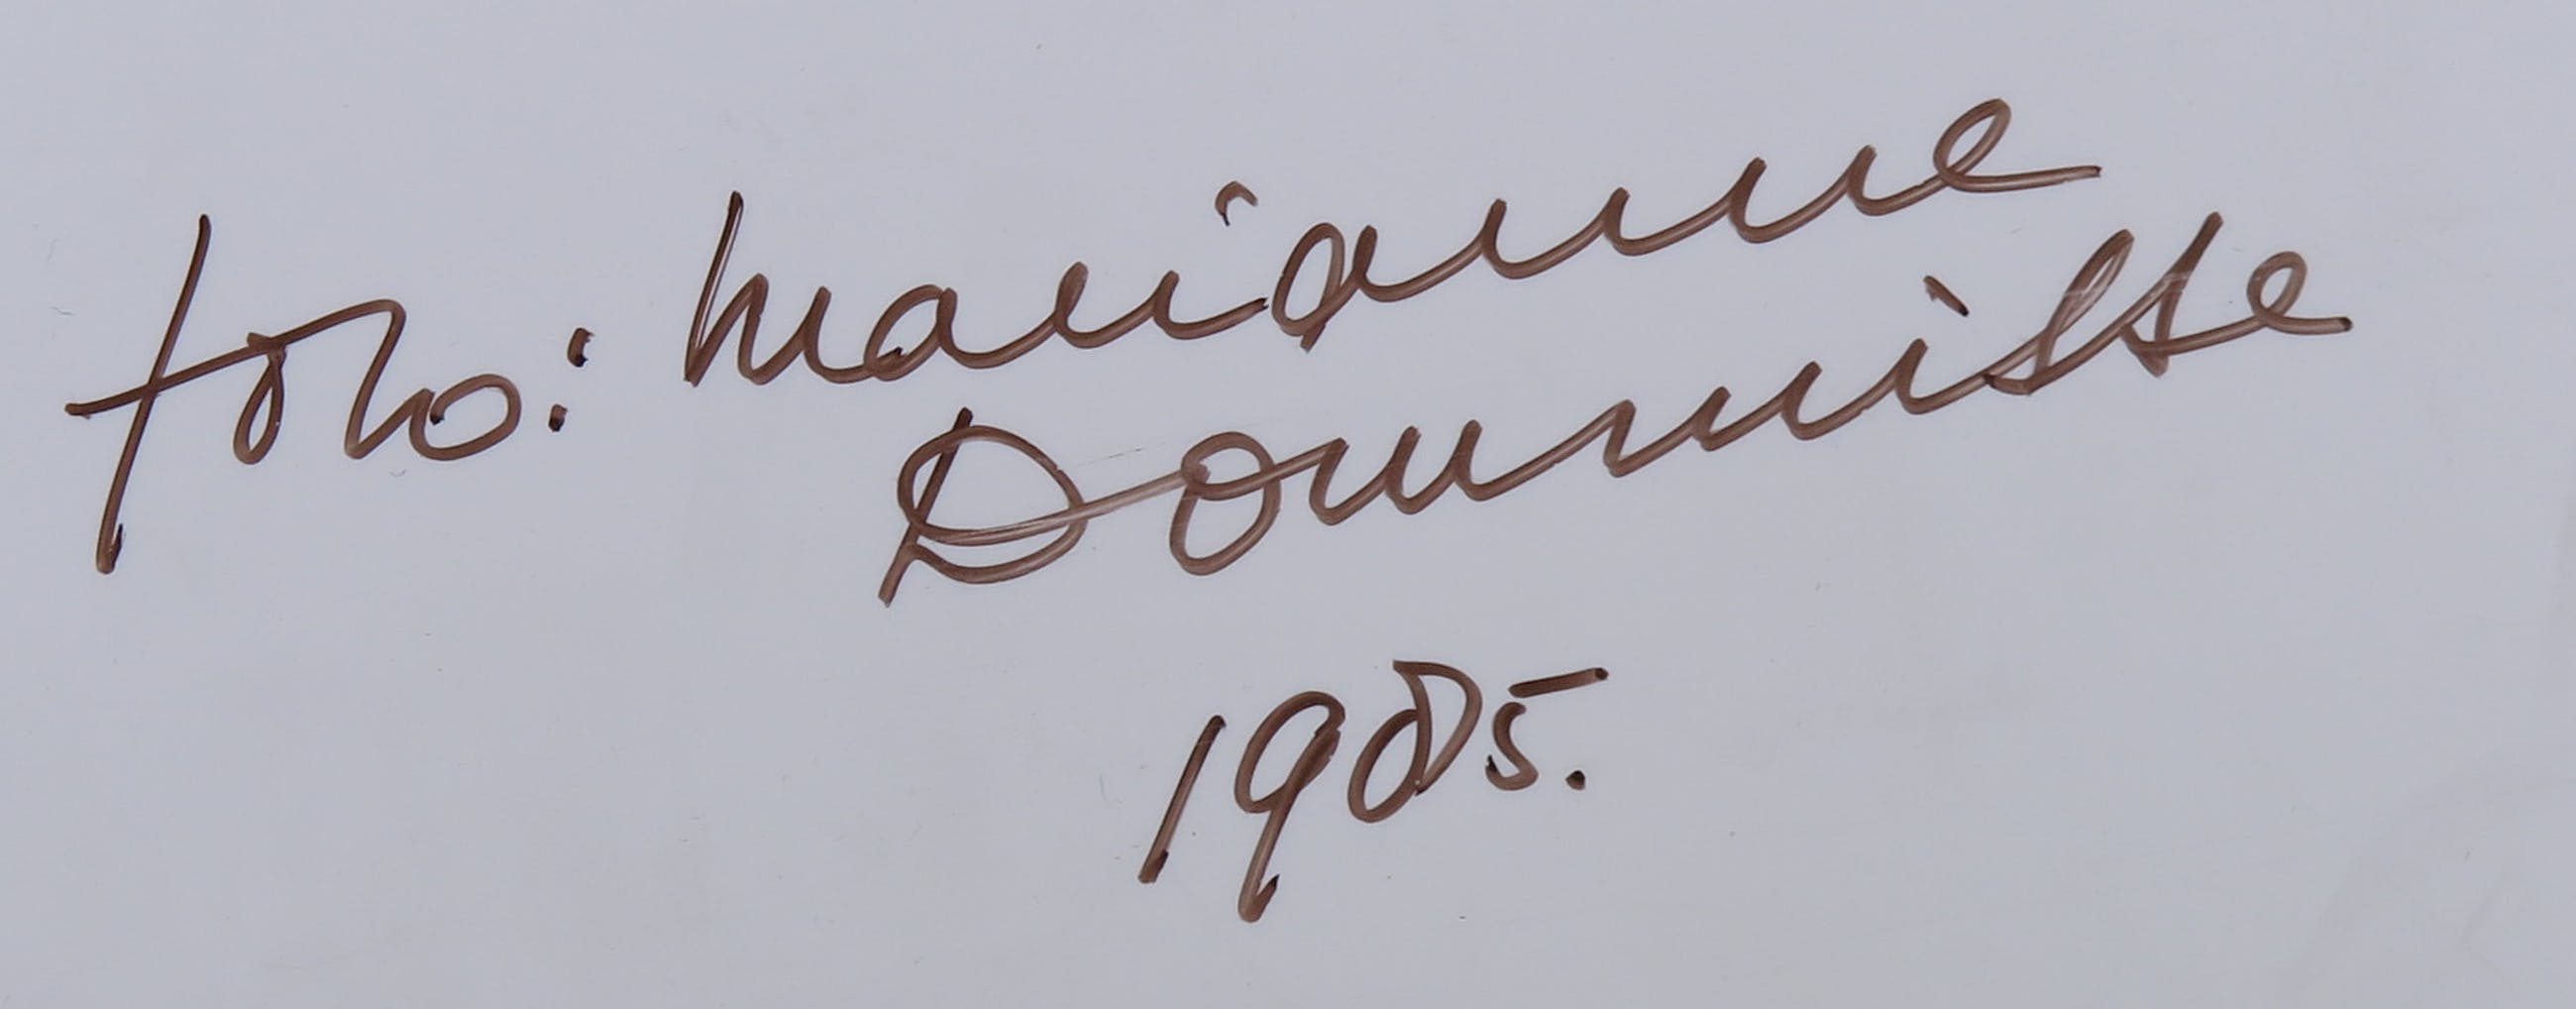 foto: Marianne
Dommisse
1985.